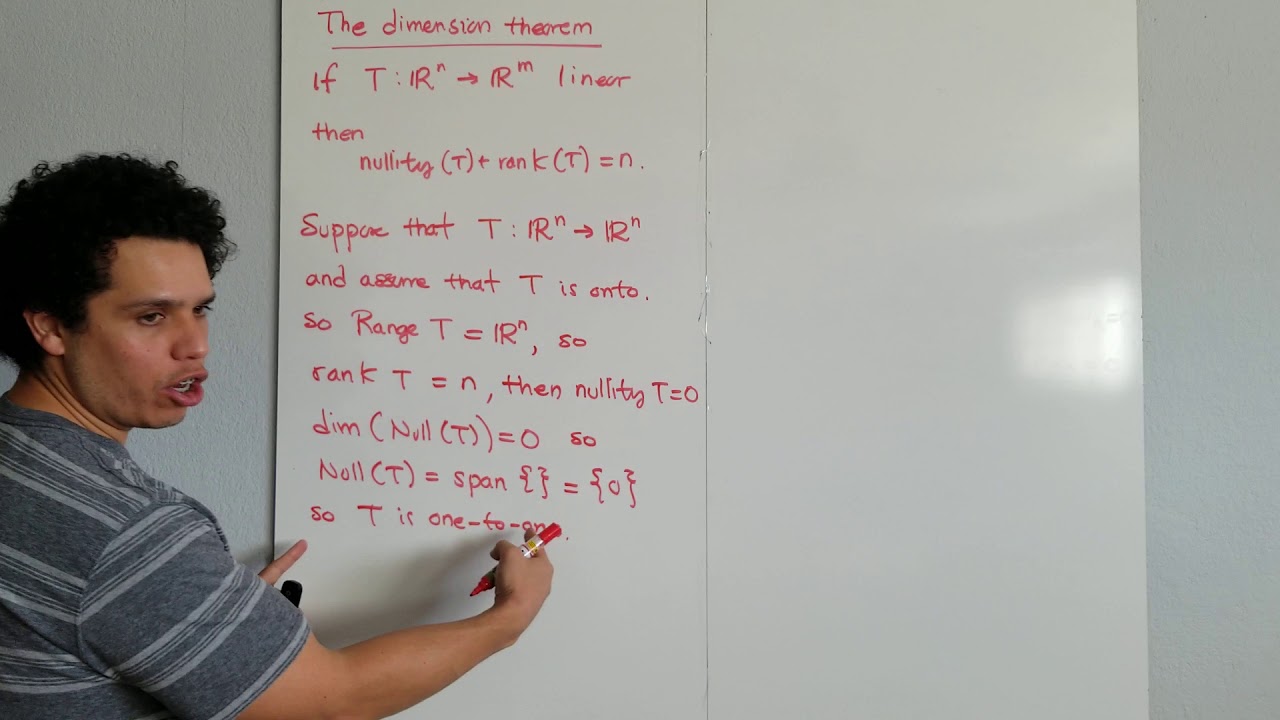 The dimension theorem
If T : ℝⁿ → ℝᵐ linear
then
nullity (T) + rank (T) = n.
Suppose that T : ℝⁿ → ℝⁿ
and assume that T is onto.
so Range T = ℝⁿ, so
rank T = n, then nullity T = 0
dim (Null (T)) = 0 so
Null (T) = span {} = {0}
so T is one-to-one.